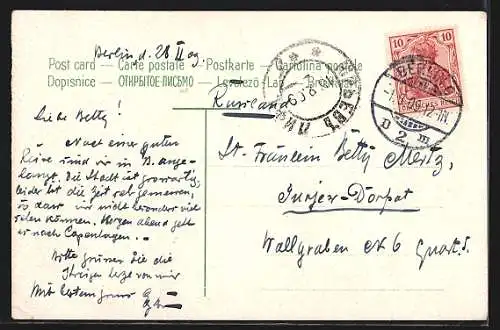 Berlin d. 28 II 09.
Post card — Carte postale — Postkarte — Cartolina postale
Dopisnice — ОТКРЫТОЕ ПИСЬМО — Levelező-Lap —
Russland
Liebe Betty!
Nach einer guten
Reise sind wir in B. ange-
langt. Die Stadt ist grossartig,
leider ist die Zeit sehr gemessen,
so dass wir nicht besonders viel
sehen können. Morgen abend geht
es nach Copenhagen. —
Bitte grüssen Sie die
Ihrigen von mir
Mit bestem Gruss
St. Fräulein Betty Mertz,
Jurjew-Dorpat
Wallgraben № 6 Quart. 5.
10 10
BERLIN
D 2 m
ЮРЬЕВЪ